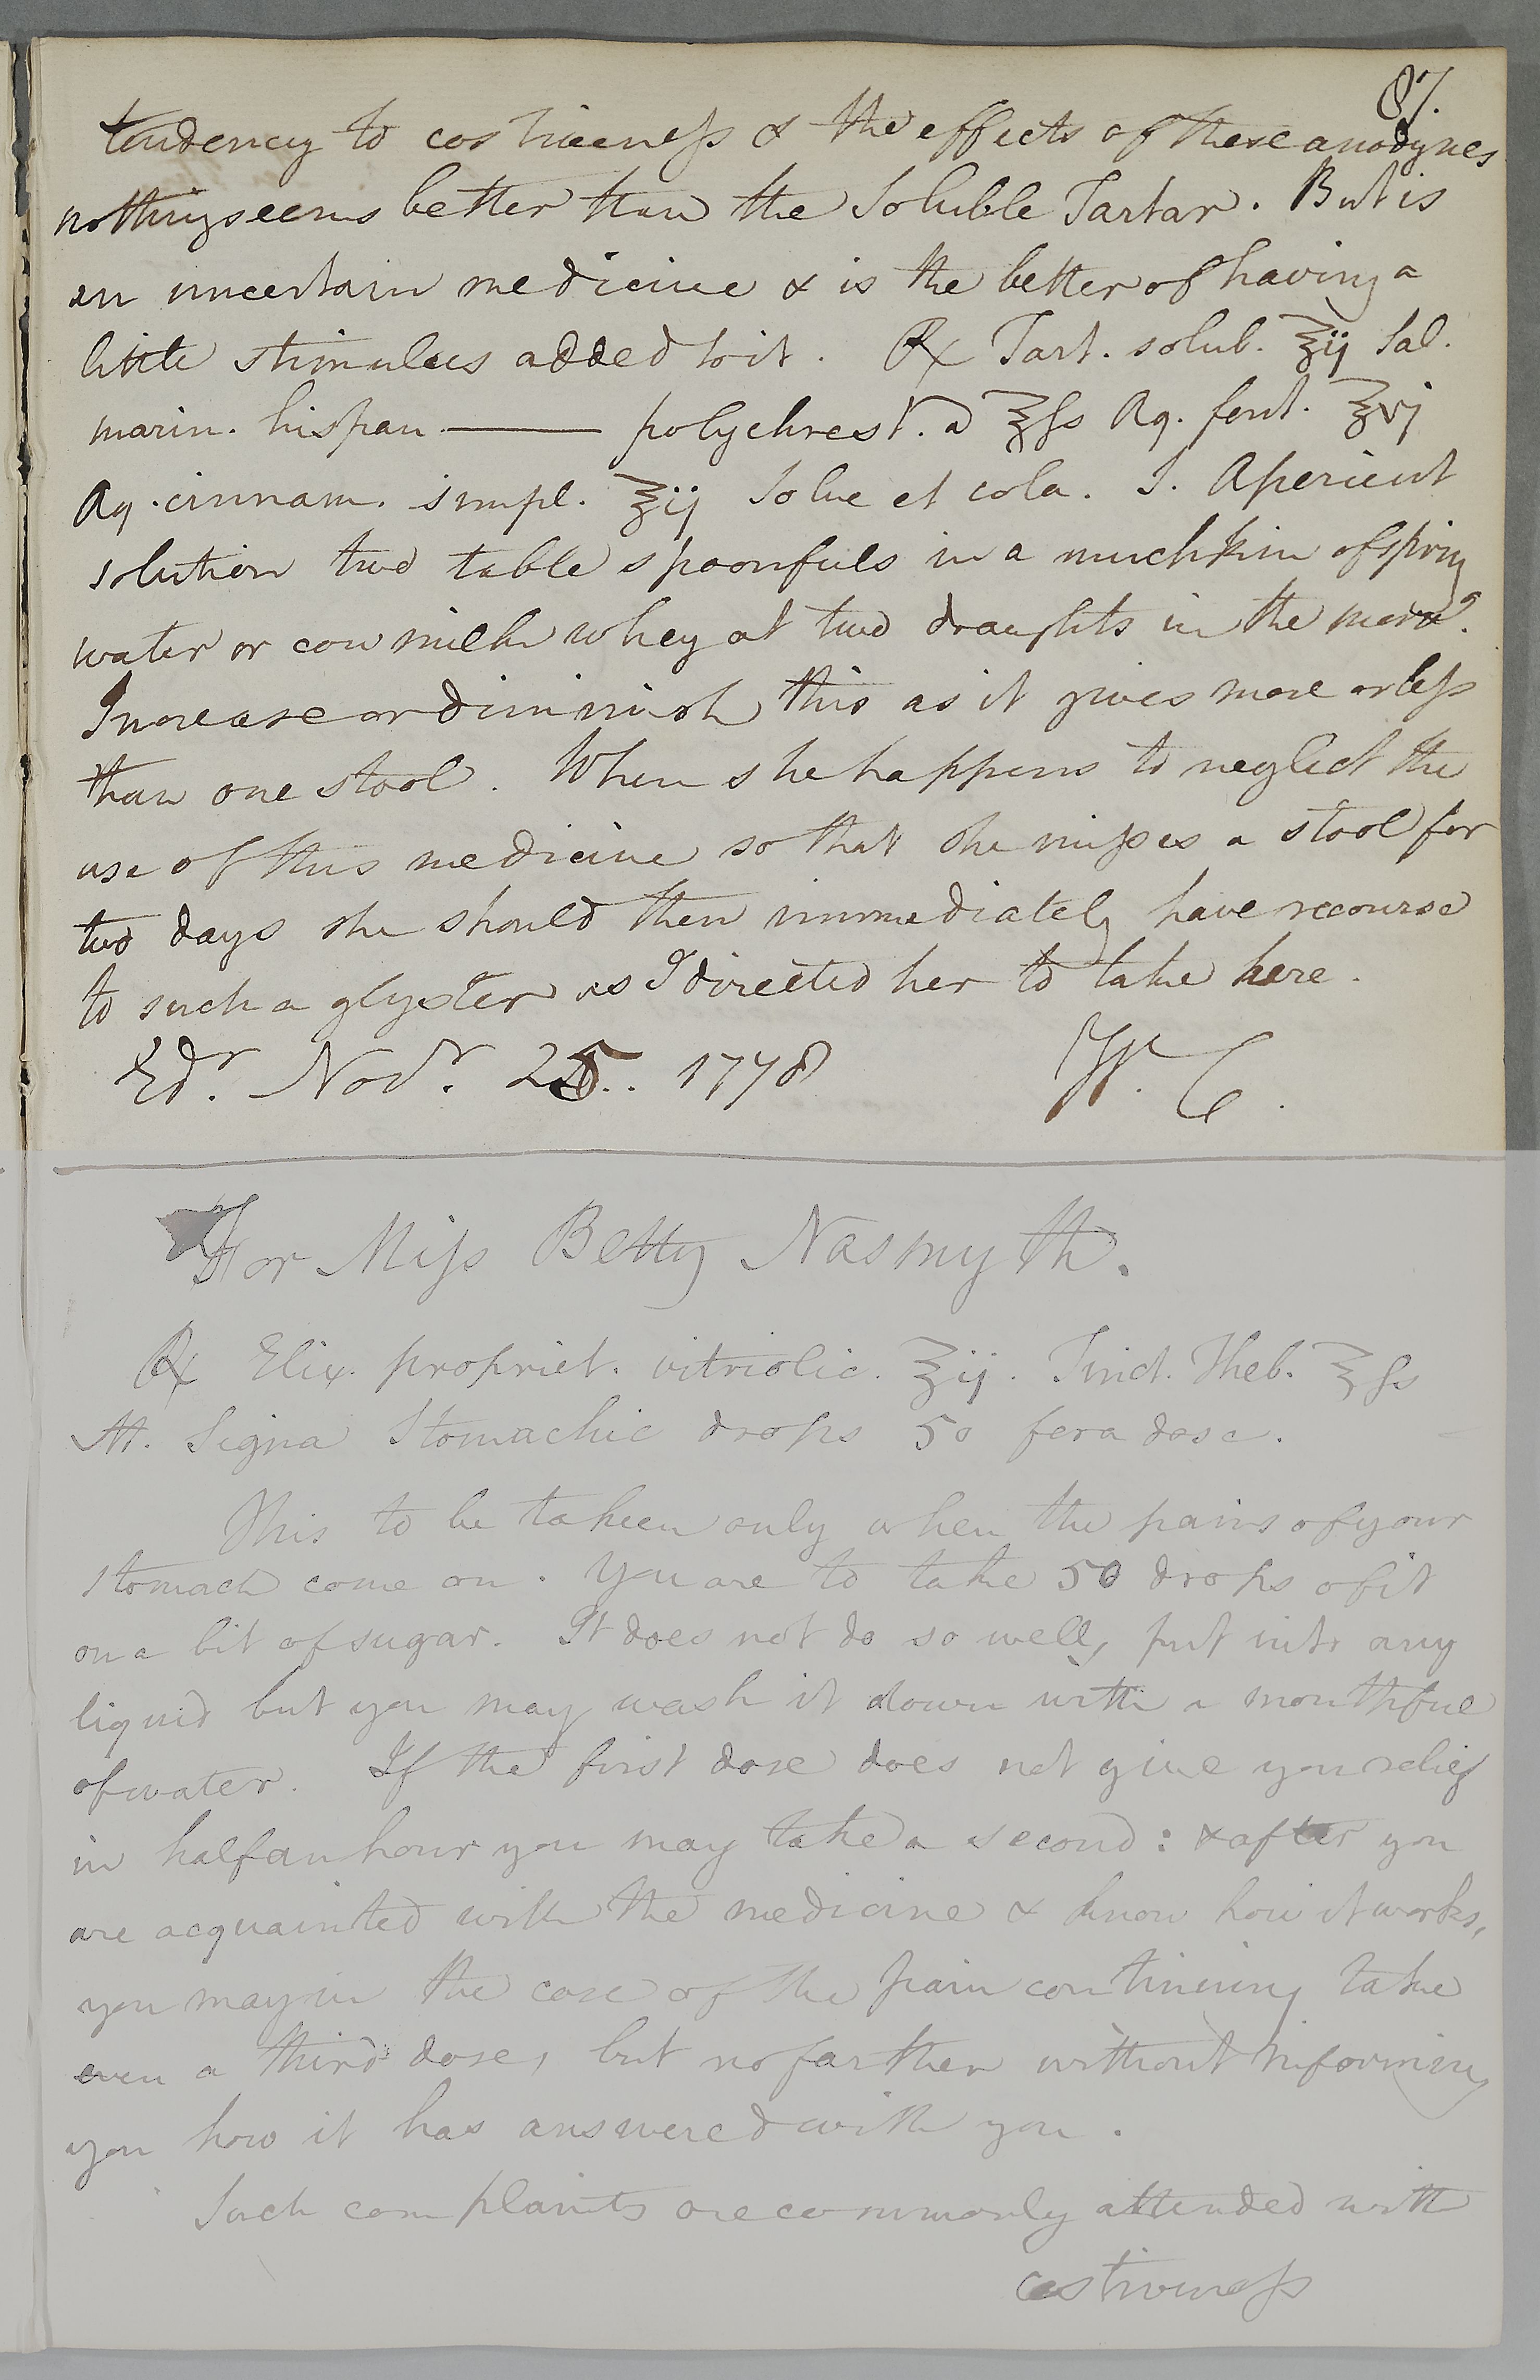 87.
tendency to costiveness & the effects of these anodynes
nothing seems better than the Soluble Tartar. But is
an uncertain medicine & is the better of having a
little stimulus added to it. ℞ Tart. solub. ℥ij Sal.
marin. hispan. ——— polychrest. a ℥ſs Aq. font. ℥vj
Aq. cinnam. simpl. ℥ij Solve et cola. S. Aperient
solution two table spoonfuls in a muchkin of spring
water or cow milk whey at two draughts in the morng.
Increase or diminish this as it gives more or less
than one stool. When she happens to neglect the
use of this medicine so that she misses a stool for
two days she should then immediately have recourse
to such a glyster as I directed her to take here.
Edr. Novr. 25. 1778 W. C.
For Miss Betty Nasmyth.
℞ Elix. propriet. vitriolic. ℥ij. Tinct. Theb. ℥ſs
M. Signa Stomachic drops 50 for a dose.
This to be taken only when the pains of your
stomach come on. You are to take 50 drops of it
on a bit of sugar. It does not do so well, put into any
liquid but you may wash it down with a mouthful
of water. If the first dose does not give you relief
in half an hour you may take a second: & after you
are acquainted with the medicine & know how it works,
you may in the case of the pain continuing take
even a third dose, but no farther without informing
you how it has answered with you.
Such complaints are commonly attended with
costiveness